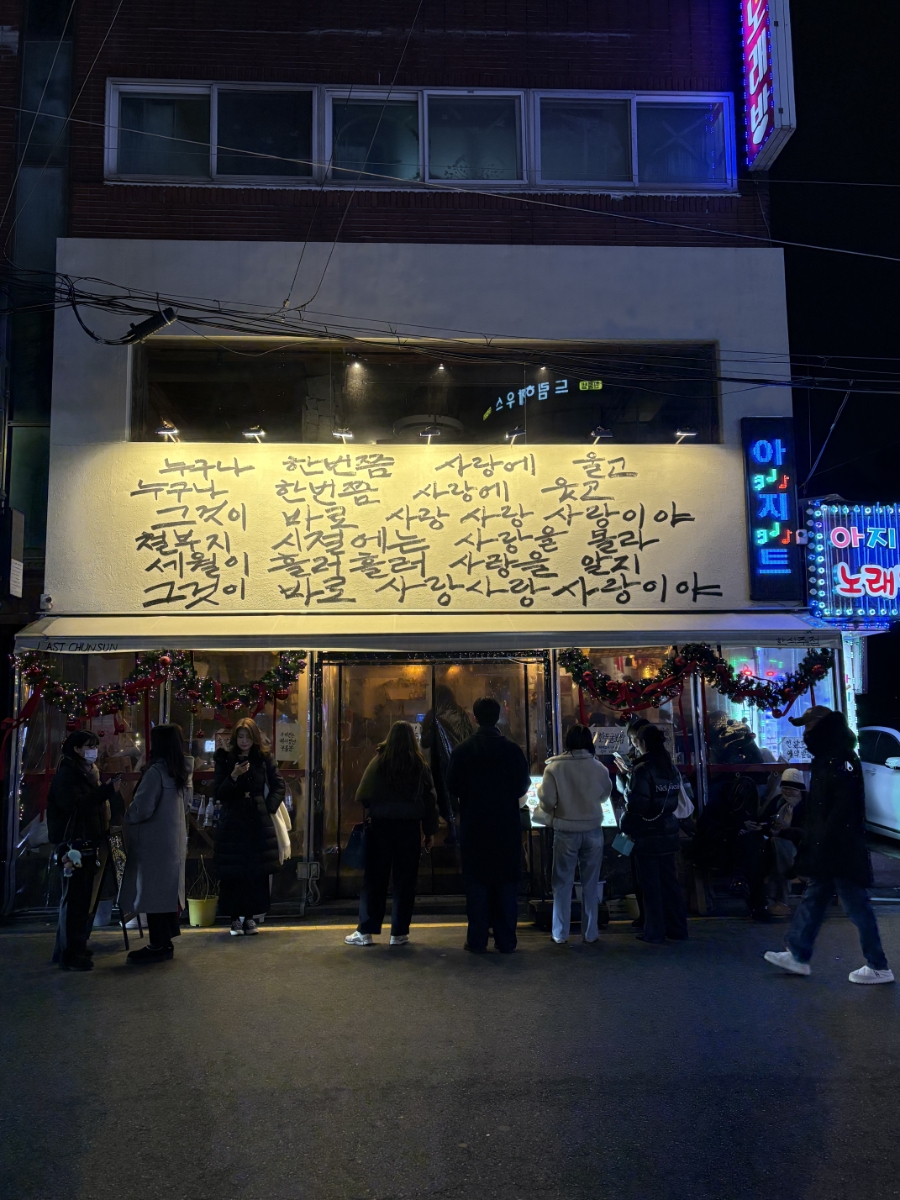 노래방
드림하우스
누구나 한번쯤 사랑에 울고
누구나 한번쯤 사랑에 웃고
그것이 바로 사랑 사랑 사랑이야
철부지 시절에는 사랑을 몰라
세월이 흘러흘러 사랑을 알지
그것이 바로 사랑사랑사랑이야
아지트
아지
노래
LAST CHUNSUN